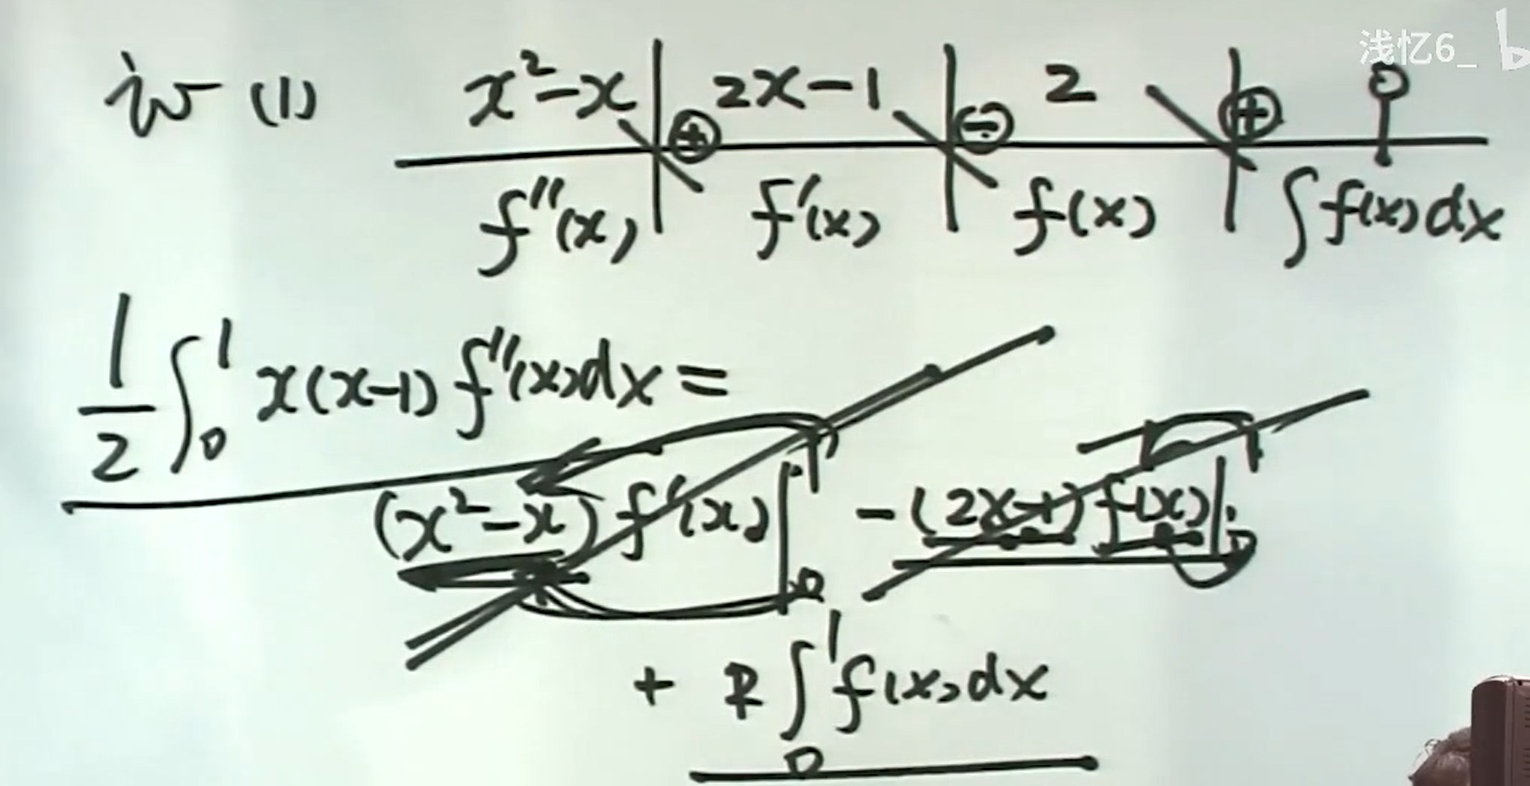 浅忆6_ b
证 (1) x²-x | 2x-1 | 2 | 0
⊕ ⊖ ⊕
f''(x) f'(x) f(x) ∫f(x)dx
1/2 ∫₀¹ x(x-1) f''(x)dx =
(x²-x) f'(x)|₀¹ -(2x-1) f(x)|₀¹
+ 2∫₀¹ f(x)dx